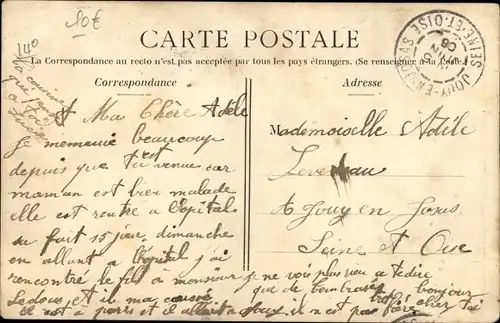 10€
140
CARTE POSTALE
La Correspondance au recto n'est pas acceptée par tous les pays étrangers. (Se renseigner à la Poste)
Correspondance
Adresse
SEINE-ET-OISE
JOUY-EN-JOSAS
Ma Chère Adèle
je m'ennuie beaucoup
depuis que tu est venue car
maman est bien malade
elle est rentré a l'opital
sa fait 15 jour, dimanche
en allant a l'opital j'ai
rencontré le fils a monsieur
Ledoux, et il ma
il est a paris et il
Mademoiselle Adèle
A Jouy en Josas
Seine et Oise
je ne vois plus rien a te dire
que de bon
bonjour
et il n'est pas
chez toi